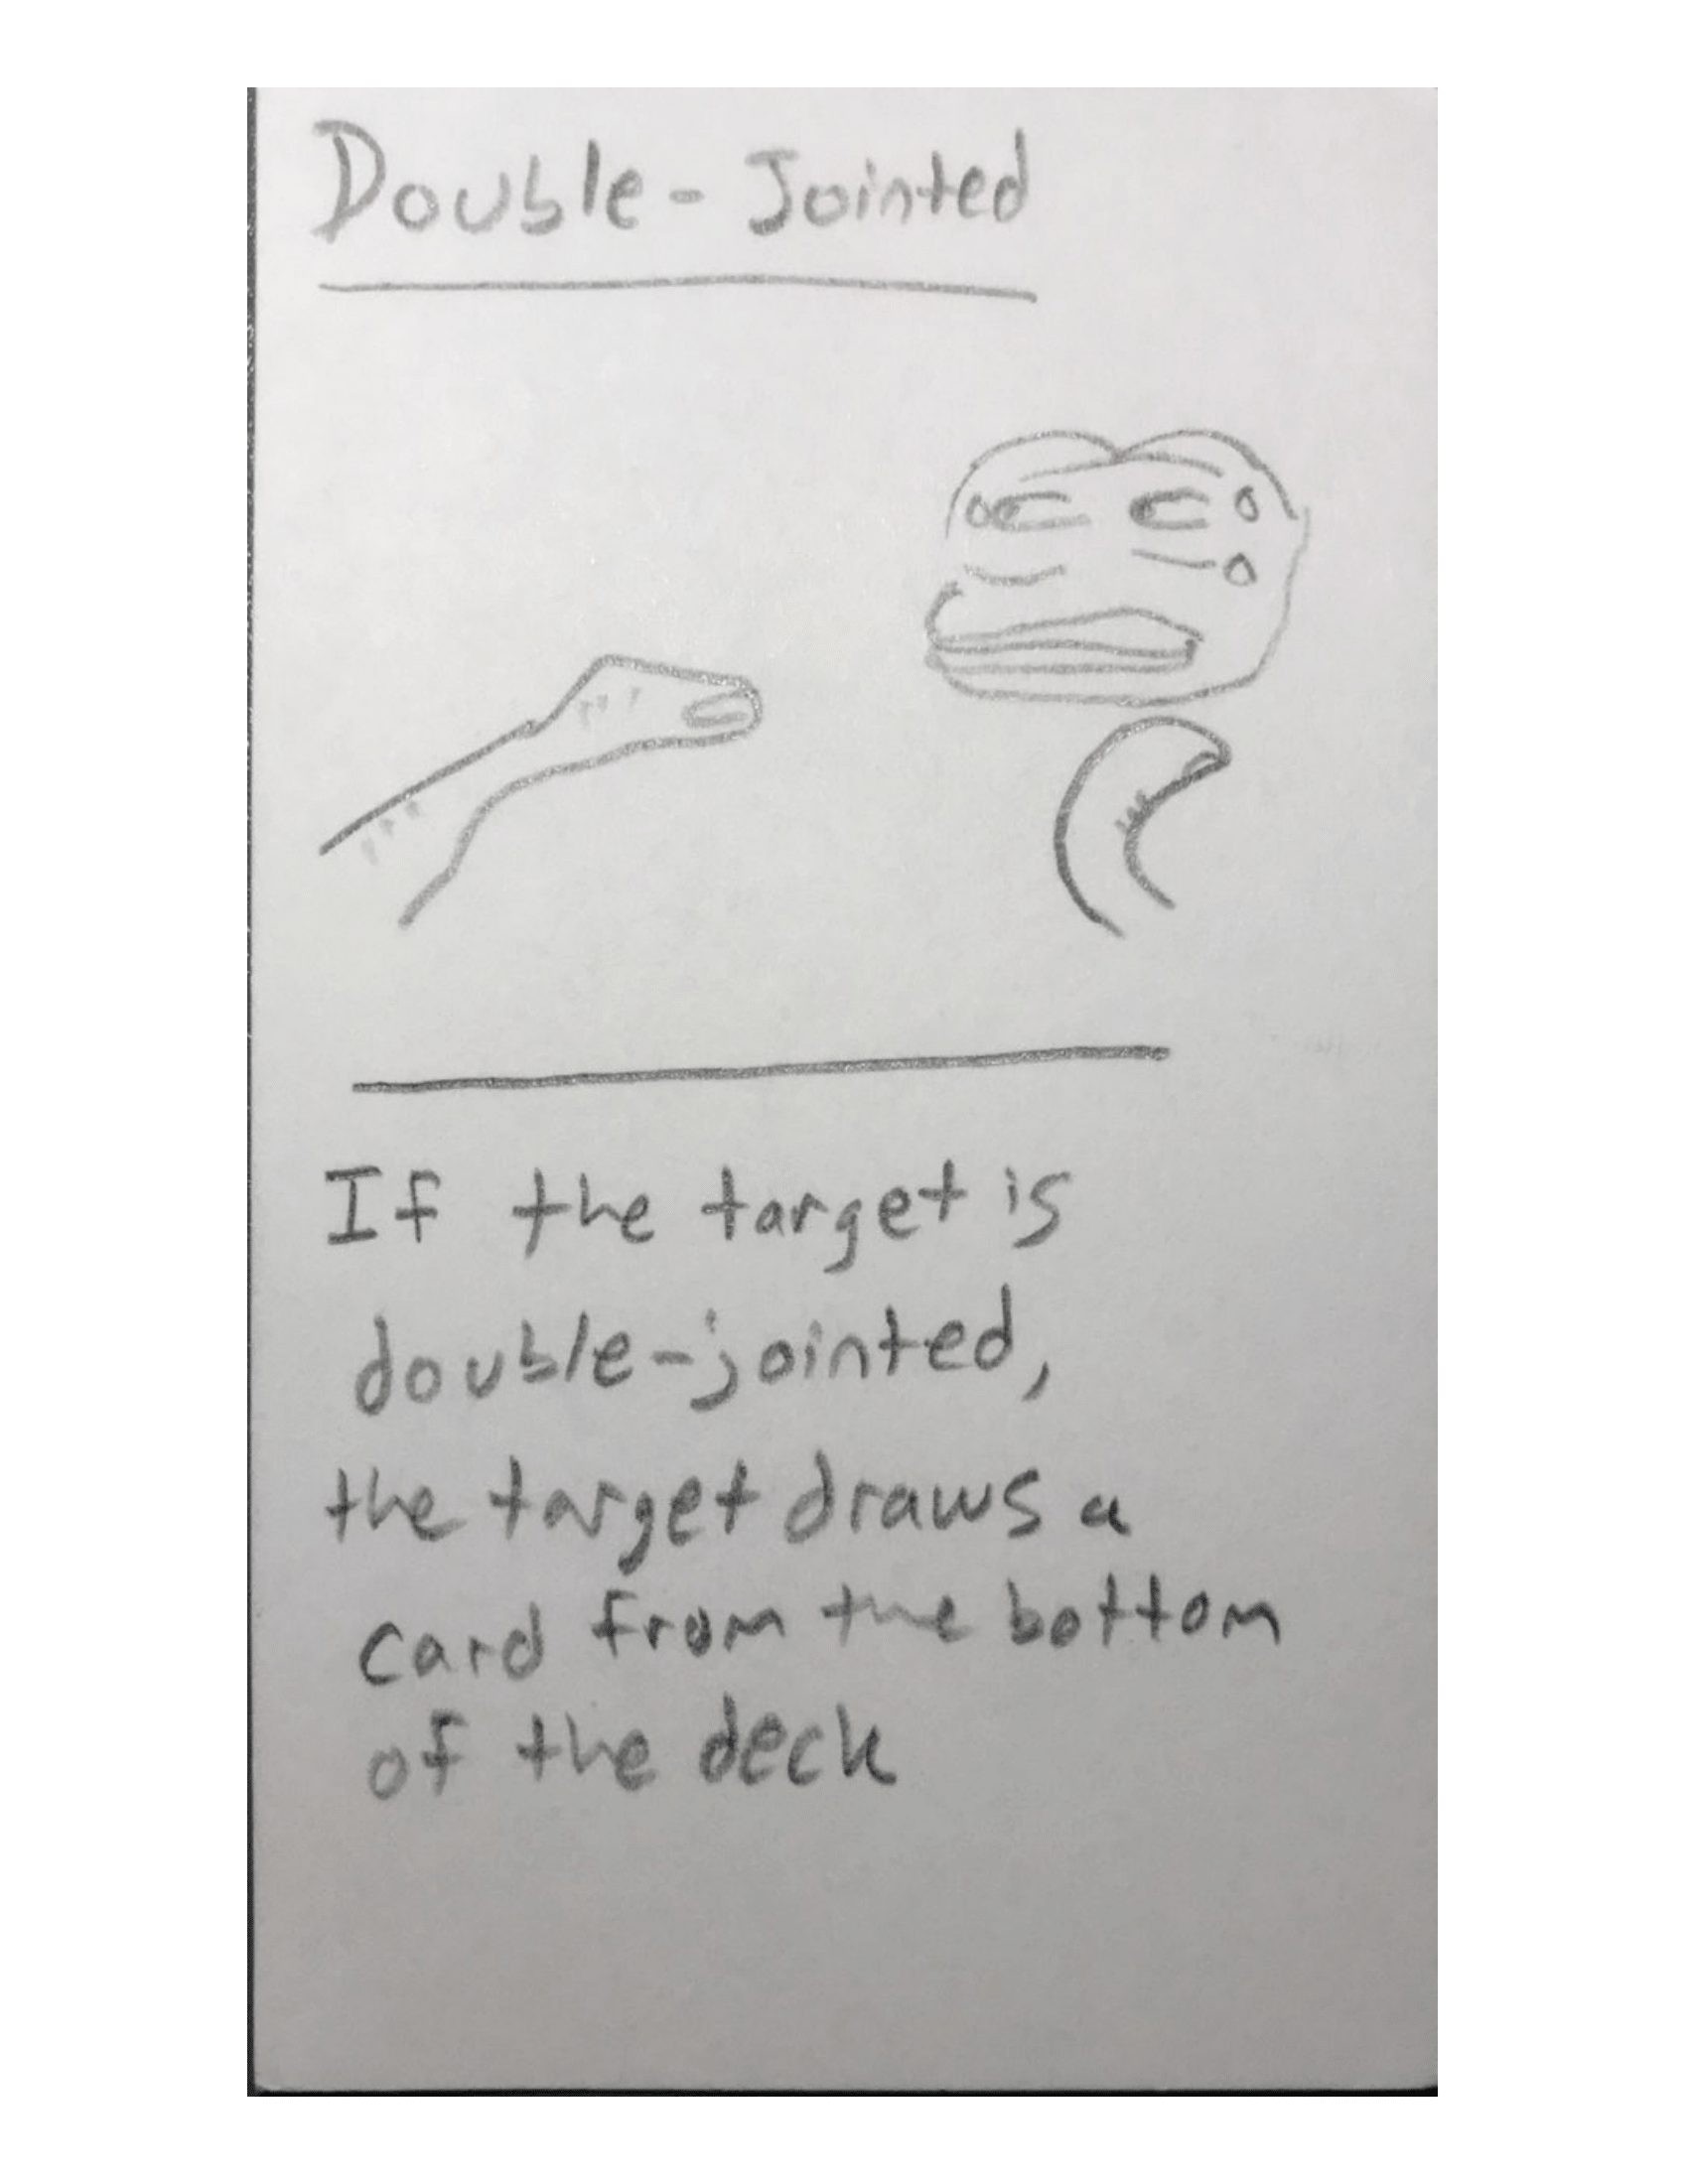 Double-Jointed
If the target is
double-jointed,
the target draws a
card from the bottom
of the deck